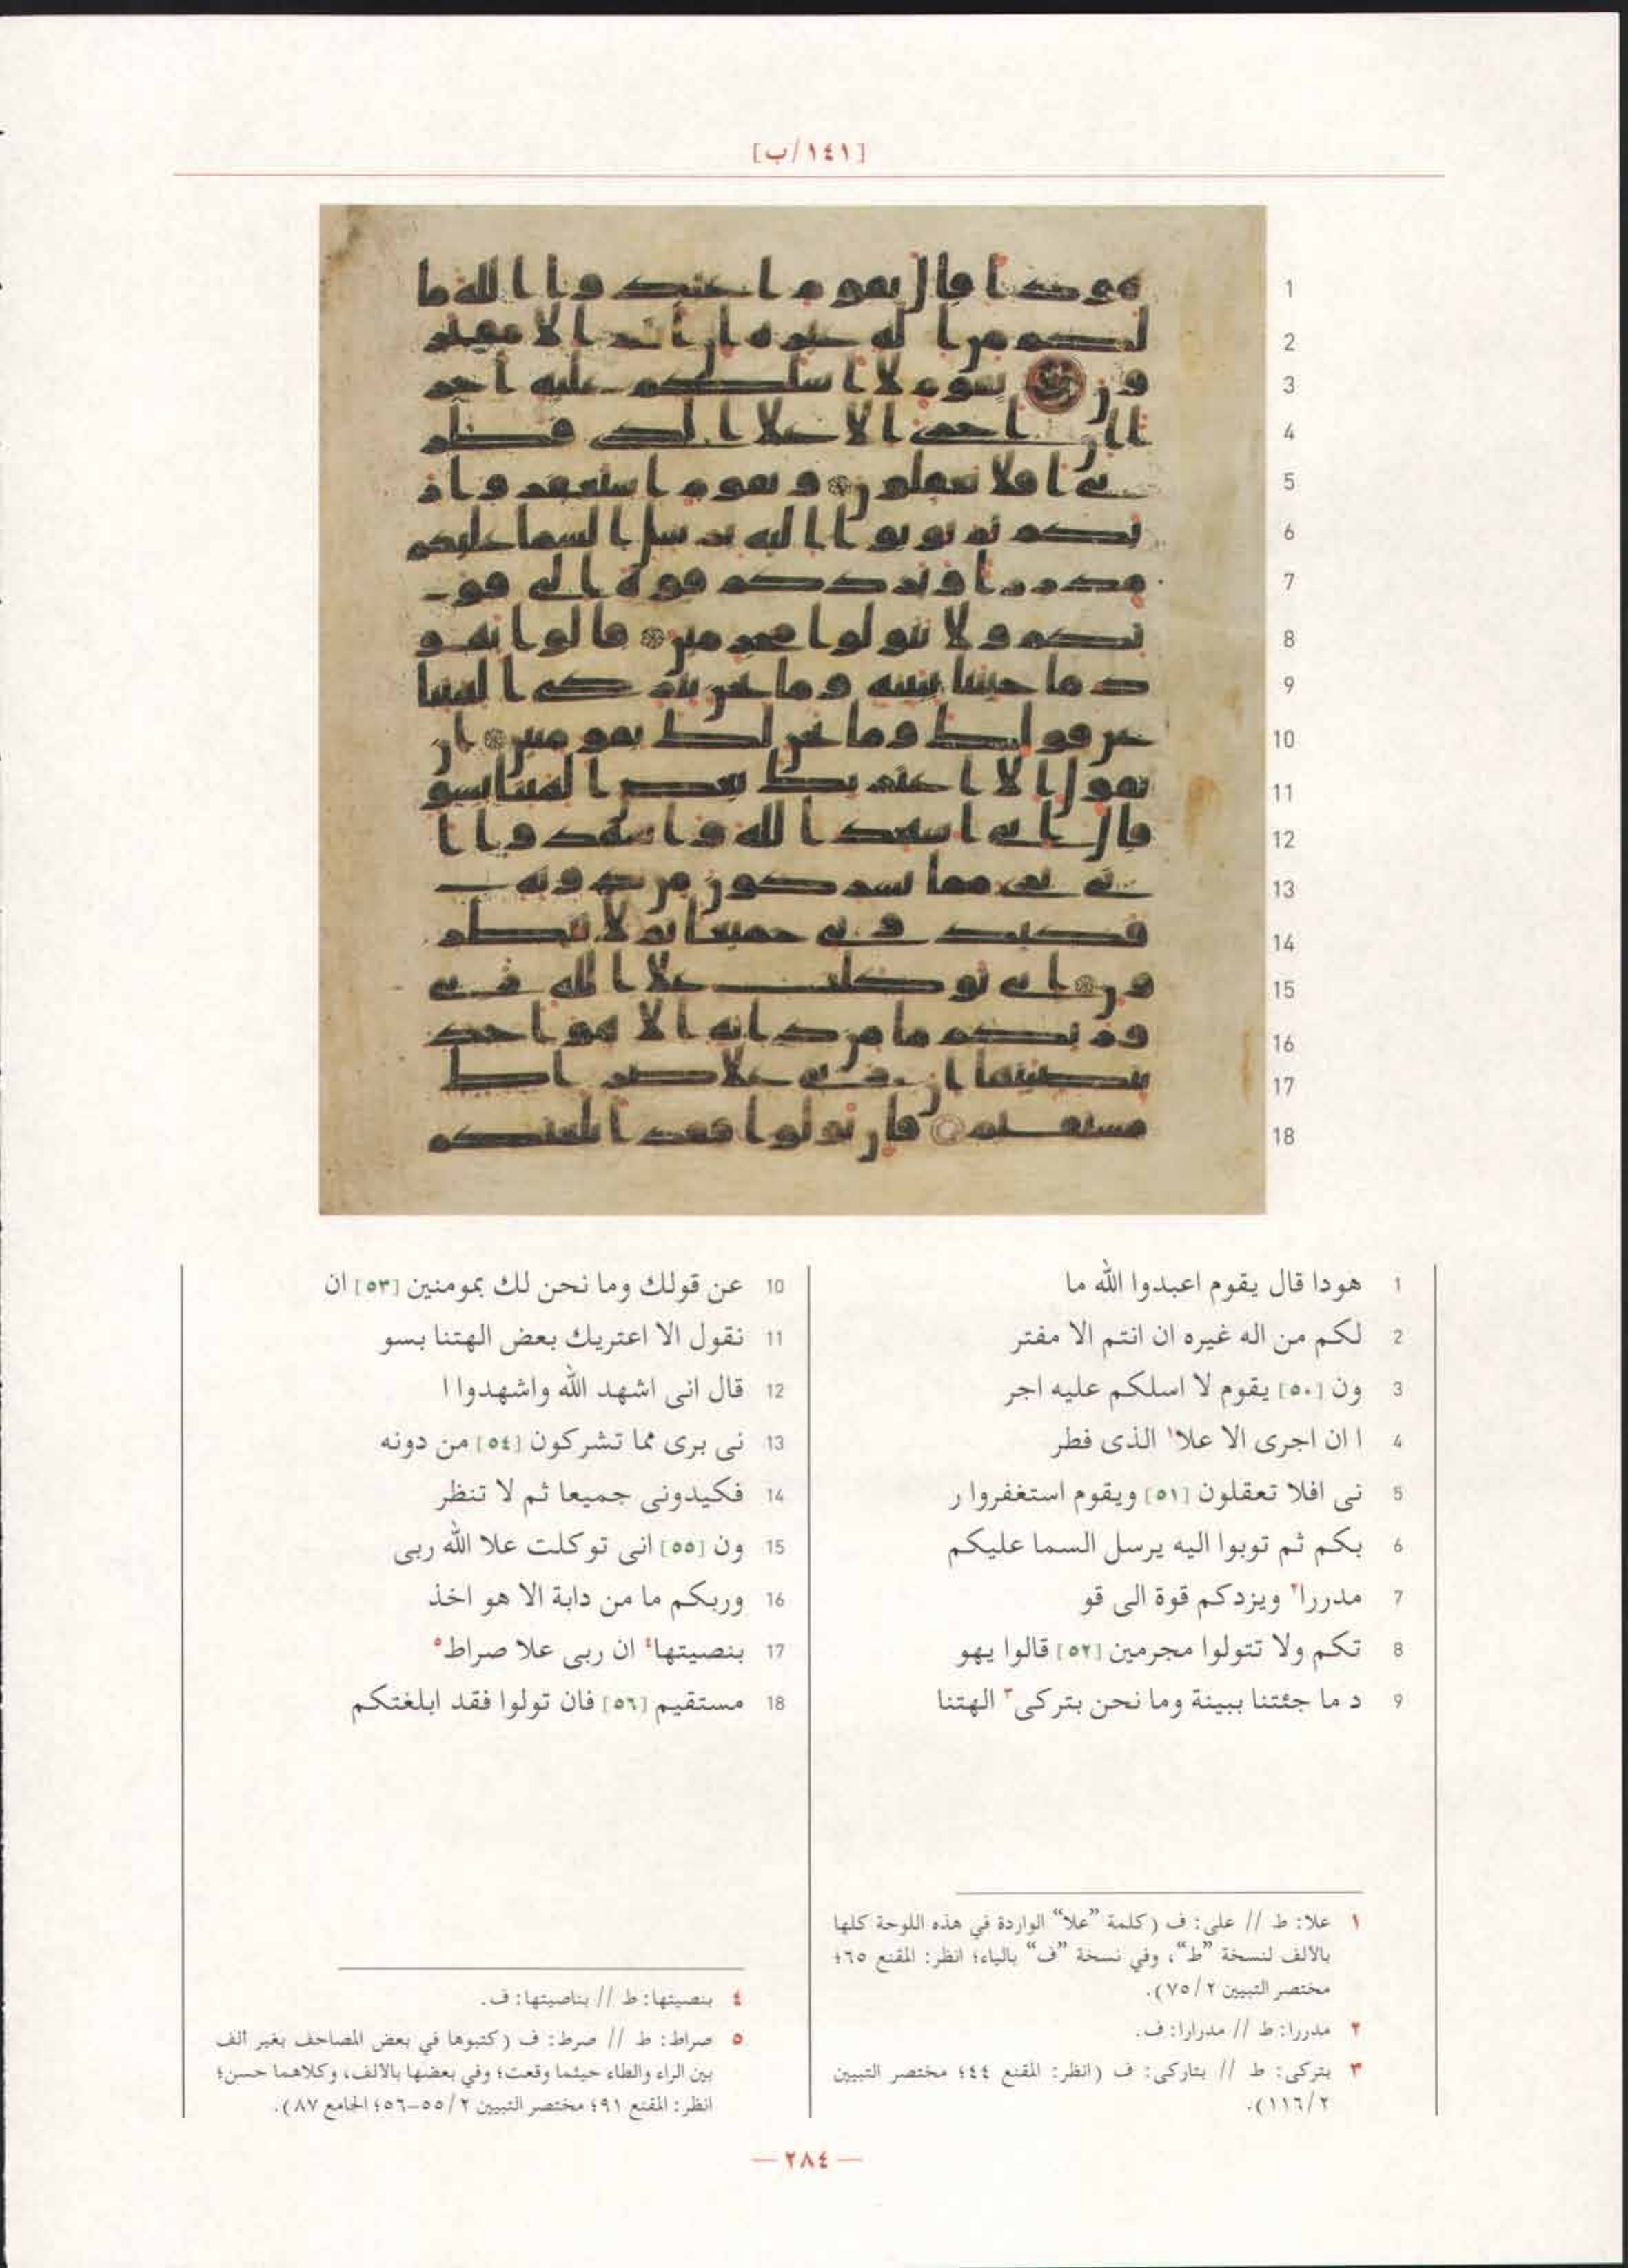 [١٤١/ب]
1
2
3
4
5
6
7
8
9
10
11
12
13
14
15
16
17
18
1 هودا قال يقوم اعبدوا الله ما
2 لكم من اله غيره ان انتم الا مفتر
3 ون [٥٠] يقوم لا اسلكم عليه اجر
4 ا ان اجرى الا علا١ الذى فطر
5 نى افلا تعقلون [٥١] ويقوم استغفروا ر
6 بكم ثم توبوا اليه يرسل السما عليكم
7 مدررا٢ ويزدكم قوة الى قو
8 تكم ولا تتولوا مجرمين [٥٢] قالوا يهو
9 د ما جئتنا ببينة وما نحن بتركى٣ الهتنا
10 عن قولك وما نحن لك بمومنين [٥٣] ان
11 نقول الا اعتريك بعض الهتنا بسو
12 قال انى اشهد الله واشهدوا ا
13 نى برى مما تشركون [٥٤] من دونه
14 فكيدونى جميعا ثم لا تنظر
15 ون [٥٥] انى توكلت علا الله ربى
16 وربكم ما من دابة الا هو اخذ
17 بنصيتها٤ ان ربى علا صراط٥
18 مستقيم [٥٦] فان تولوا فقد ابلغتكم
١ علا: ط // على: ف (كلمة “علا” الواردة في هذه اللوحة كلها
بالألف لنسخة “ط”، وفي نسخة “ف” بالياء؛ انظر: المقنع ٦٥؛
مختصر التبيين ٧٥/٢).
٢ مدررا: ط // مدرارا: ف.
٣ بتركى: ط // بتاركى: ف (انظر: المقنع ٤٤؛ مختصر التبيين
١١٦/٢).
٤ بنصيتها: ط // بناصيتها: ف.
٥ صراط: ط // صرط: ف (كتبوها في بعض المصاحف بغير ألف
بين الراء والطاء حيثما وقعت؛ وفي بعضها بالألف، وكلاهما حسن؛
انظر: المقنع ٩١؛ مختصر التبيين ٥٥/٢–٥٦؛ الجامع ٨٧).
— ٢٨٤ —